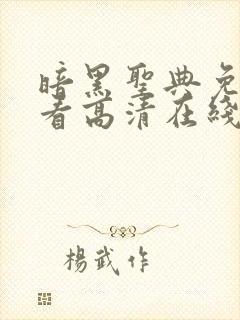 暗黑聖典免
看高清在綫
楊武作